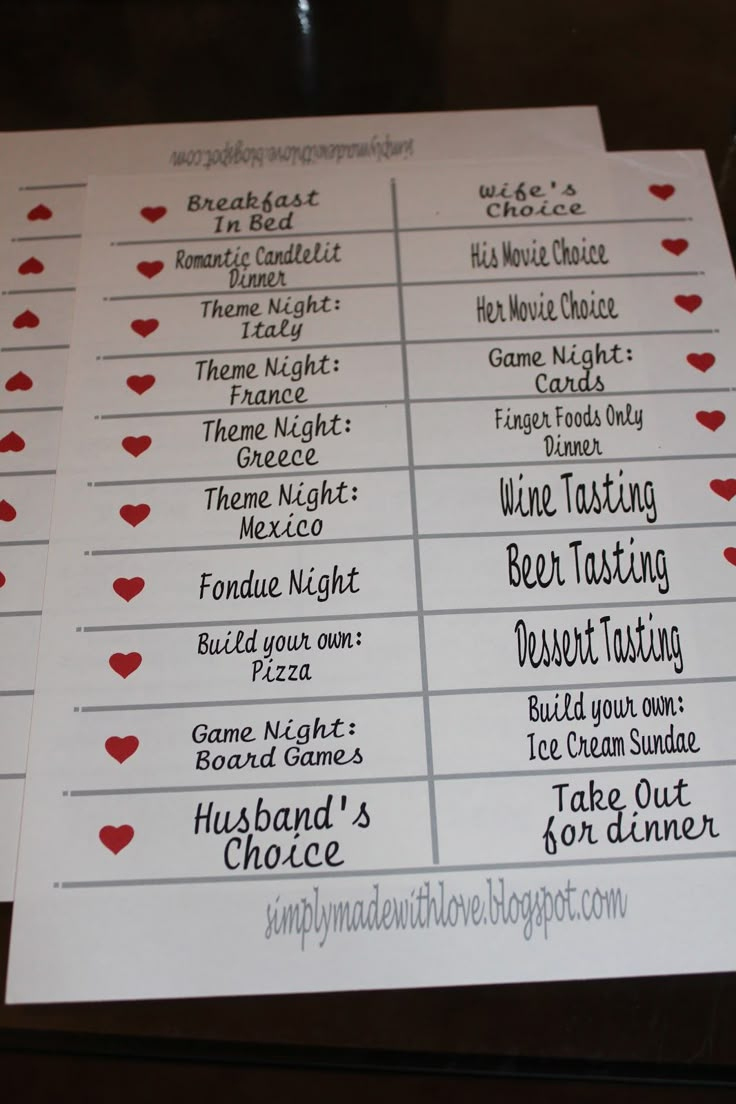 simplymadewithlove.blogspot.com
Breakfast
In Bed
Wife's
Choice
Romantic Candlelit
Dinner
His Movie Choice
Theme Night:
Italy
Her Movie Choice
Theme Night:
France
Game Night:
Cards
Theme Night:
Greece
Finger Foods Only
Dinner
Theme Night:
Mexico
Wine Tasting
Fondue Night
Beer Tasting
Build your own:
Pizza
Dessert Tasting
Game Night:
Board Games
Build your own:
Ice Cream Sundae
Husband's
Choice
Take Out
for dinner
simplymadewithlove.blogspot.com